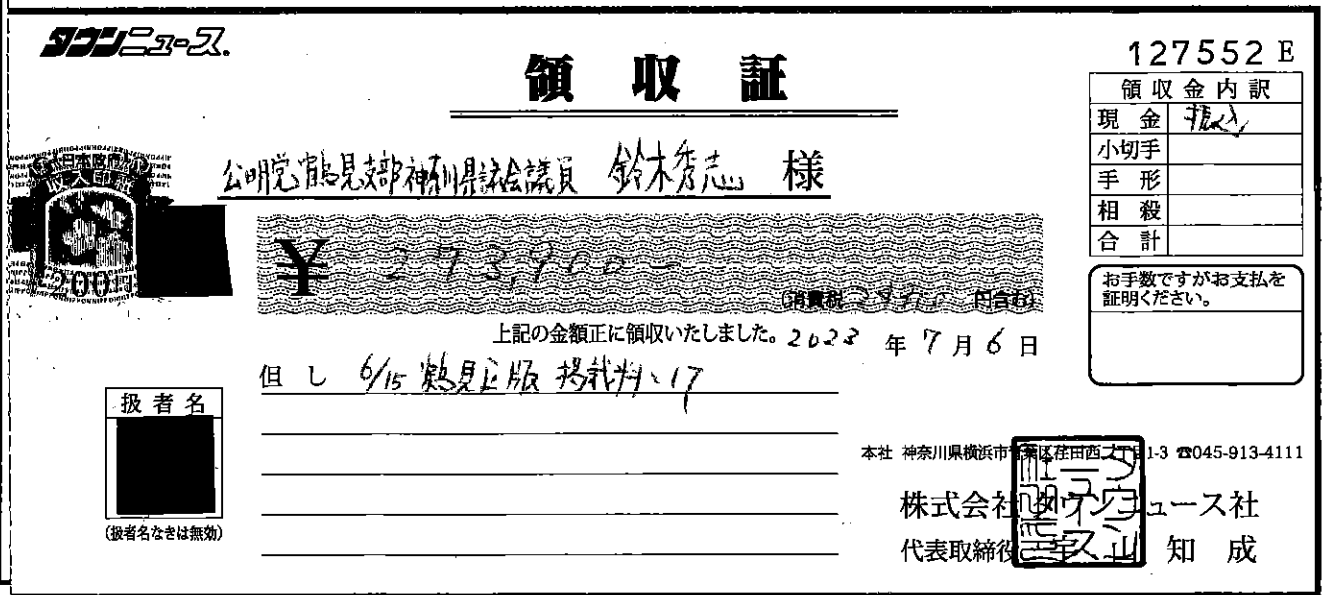 タウンニュース.
127552 E
領収証
領収金内訳
現金 振込
小切手
手形
相殺
合計
日本政府
収入印紙
200円
公明党鶴見支部神奈川県議会議員 鈴木秀志 様
¥ 273,900-
(消費税 24900 円含む)
お手数ですがお支払を
証明ください。
上記の金額正に領収いたしました。2023年7月6日
但し 6/15 鶴見区版 掲載料として
扱者名
(扱者名なきは無効)
本社 神奈川県横浜市青葉区荏田西2丁目1-3 ☎045-913-4111
株式会社タウンニュース社
代表取締役 宇山知成